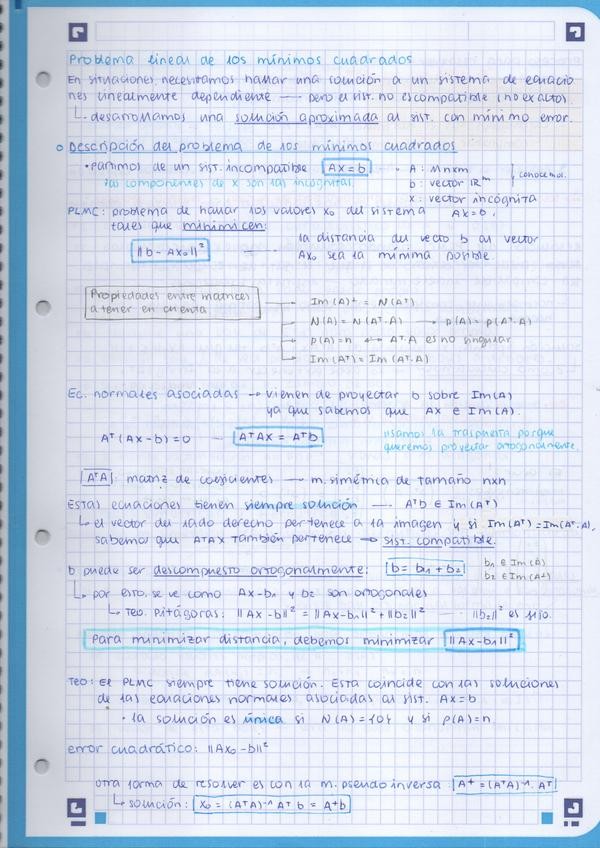 Problema lineal de los mínimos cuadrados
En situaciones, necesitamos hallar una solución a un sistema de ecuacio
nes linealmente dependiente — pero el sist. no es compatible (no exacto).
↳ desarrollamos una solución aproximada al sist. con mínimo error.
o Descripción del problema de los mínimos cuadrados
• partimos de un sist. incompatible Ax = b • A: Mnxm
las componentes de x son las incógnitas b: vector ℝᵐ conocemos.
x: vector incógnita
PLMC: problema de hallar los valores x₀ del sistema Ax = b,
tales que minimicen:
‖b - Ax₀‖² — la distancia del vecto b al vector
Ax₀ sea la mínima posible.
Propiedades entre matrices
a tener en cuenta
Im(A)⊥ = N(Aᵀ)
N(A) = N(Aᵀ·A) → ρ(A) = ρ(Aᵀ·A)
ρ(A) = n ↔ Aᵀ·A es no singular
Im(Aᵀ) = Im(Aᵀ·A)
Ec. normales asociadas → vienen de proyectar b sobre Im(A)
ya que sabemos que Ax ∈ Im(A).
Aᵀ(Ax-b) = 0 — AᵀAx = Aᵀb usamos la traspuesta porque
queremos proyectar ortogonalmente.
AᵀA: matriz de coeficientes → m. simétrica de tamaño nxn
Estas ecuaciones tienen siempre solución — Aᵀb ∈ Im(Aᵀ)
↳ el vector del lado derecho pertenece a la imagen y si Im(Aᵀ) = Im(Aᵀ·A),
sabemos que AᵀAx también pertenece → sist. compatible.
b puede ser descompuesto ortogonalmente: b = b₁ + b₂ b₁ ∈ Im(A)
b₂ ∈ Im(A⊥)
↳ por esto, se ve como Ax-b₁ y b₂ son ortogonales
↳ Teo. Pitágoras: ‖Ax-b‖² = ‖Ax-b₁‖² + ‖b₂‖² — ‖b₂‖² es fijo.
Para minimizar distancia, debemos minimizar ‖Ax-b₁‖²
TEO: El PLMC siempre tiene solución. Esta coincide con las soluciones
de las ecuaciones normales asociadas al sist. Ax = b
• la solución es única si N(A) = {0} y si ρ(A) = n.
error cuadrático: ‖Ax₀ - b‖²
otra forma de resolver es con la m. pseudo inversa: A⁺ = (AᵀA)⁻¹·Aᵀ
↳ solución: x₀ = (AᵀA)⁻¹ Aᵀ b = A⁺b